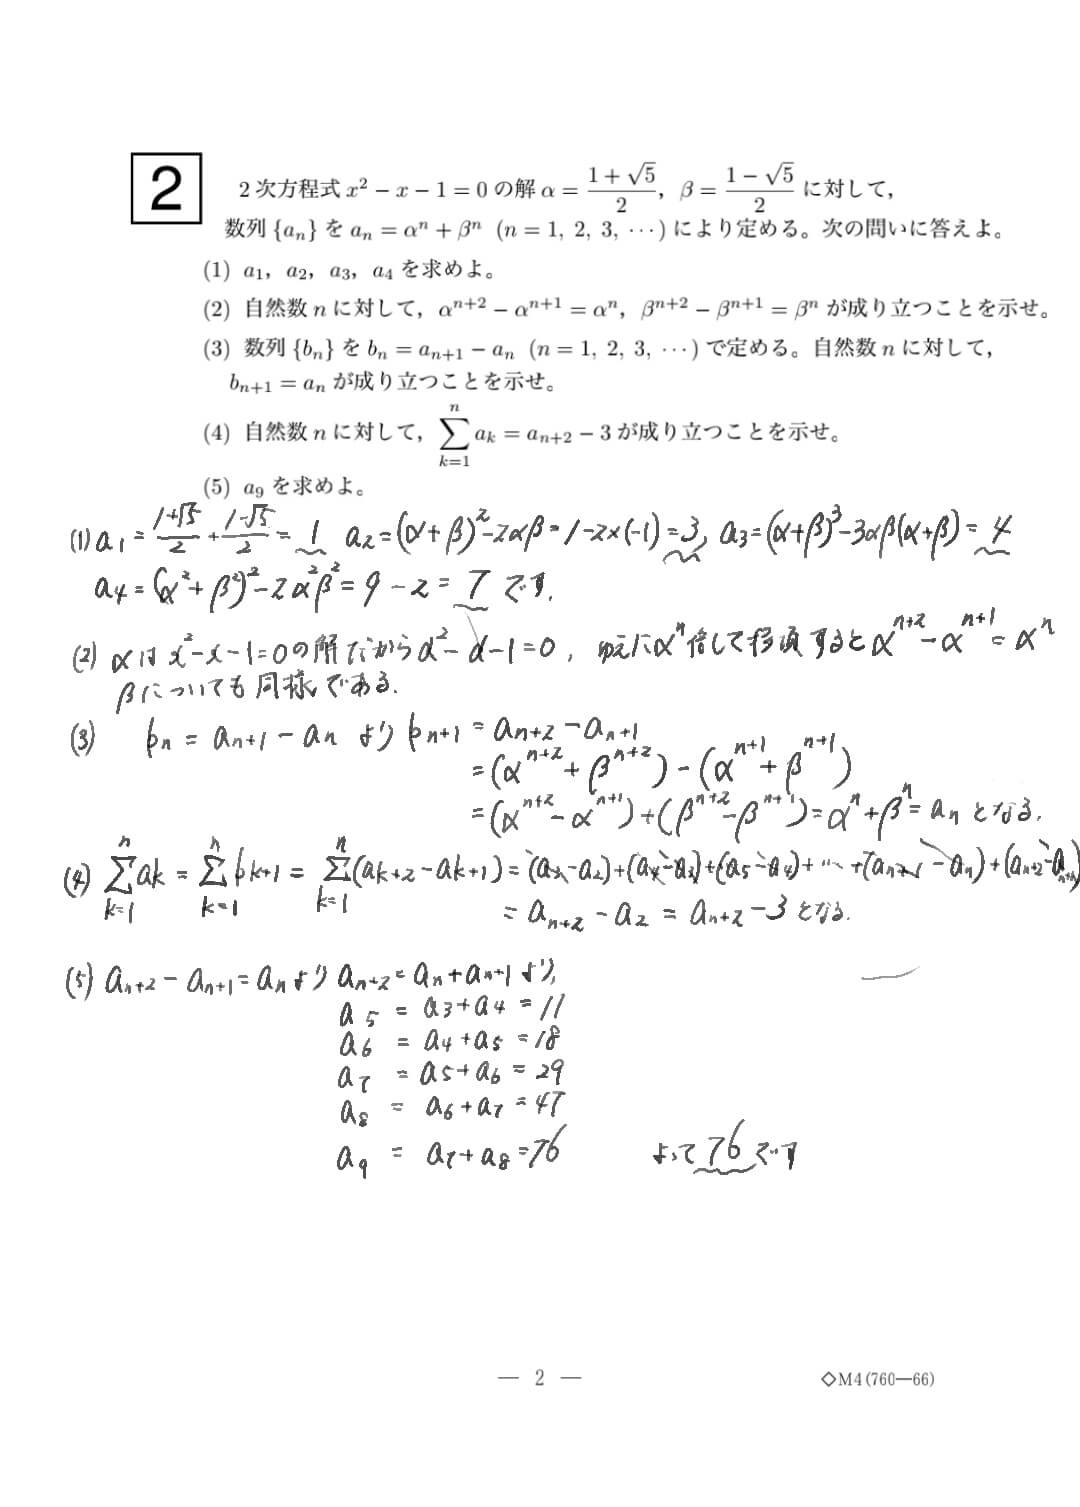 2
2次方程式 x² − x − 1 = 0 の解 α = (1 + √5)/2, β = (1 − √5)/2 に対して,
数列 {aₙ} を aₙ = αⁿ + βⁿ (n = 1, 2, 3, ⋯) により定める。次の問いに答えよ。
(1) a₁, a₂, a₃, a₄ を求めよ。
(2) 自然数 n に対して, αⁿ⁺² − αⁿ⁺¹ = αⁿ, βⁿ⁺² − βⁿ⁺¹ = βⁿ が成り立つことを示せ。
(3) 数列 {bₙ} を bₙ = aₙ₊₁ − aₙ (n = 1, 2, 3, ⋯) で定める。自然数 n に対して,
bₙ₊₁ = aₙ が成り立つことを示せ。
(4) 自然数 n に対して, ∑_{k=1}^{n} aₖ = aₙ₊₂ − 3 が成り立つことを示せ。
(5) a₉ を求めよ。
(1) a₁ = (1+√5)/2 + (1−√5)/2 = 1 a₂ = (α+β)² − 2αβ = 1 − 2×(−1) = 3, a₃ = (α+β)³ − 3αβ(α+β) = 4
a₄ = (α²+β²)² − 2α²β² = 9 − 2 = 7 です.
(2) αは x² − x − 1 = 0 の解だから α² − α − 1 = 0, ゆえに αⁿ倍して移項すると αⁿ⁺² − αⁿ⁺¹ = αⁿ
βについても同様である.
(3) bₙ = aₙ₊₁ − aₙ より bₙ₊₁ = aₙ₊₂ − aₙ₊₁
= (αⁿ⁺² + βⁿ⁺²) − (αⁿ⁺¹ + βⁿ⁺¹)
= (αⁿ⁺² − αⁿ⁺¹) + (βⁿ⁺² − βⁿ⁺¹) = αⁿ + βⁿ = aₙ となる.
(4) ∑_{k=1}^{n} aₖ = ∑_{k=1}^{n} bₖ₊₁ = ∑_{k=1}^{n} (aₖ₊₂ − aₖ₊₁) = (a₃ − a₂) + (a₄ − a₃) + (a₅ − a₄) + ⋯ + (aₙ₊₁ − aₙ) + (aₙ₊₂ − aₙ₊₁)
= aₙ₊₂ − a₂ = aₙ₊₂ − 3 となる.
(5) aₙ₊₂ − aₙ₊₁ = aₙ より aₙ₊₂ = aₙ + aₙ₊₁ より,
a₅ = a₃ + a₄ = 11
a₆ = a₄ + a₅ = 18
a₇ = a₅ + a₆ = 29
a₈ = a₆ + a₇ = 47
a₉ = a₇ + a₈ = 76 よって 76 です
— 2 —
◇M4(760—66)